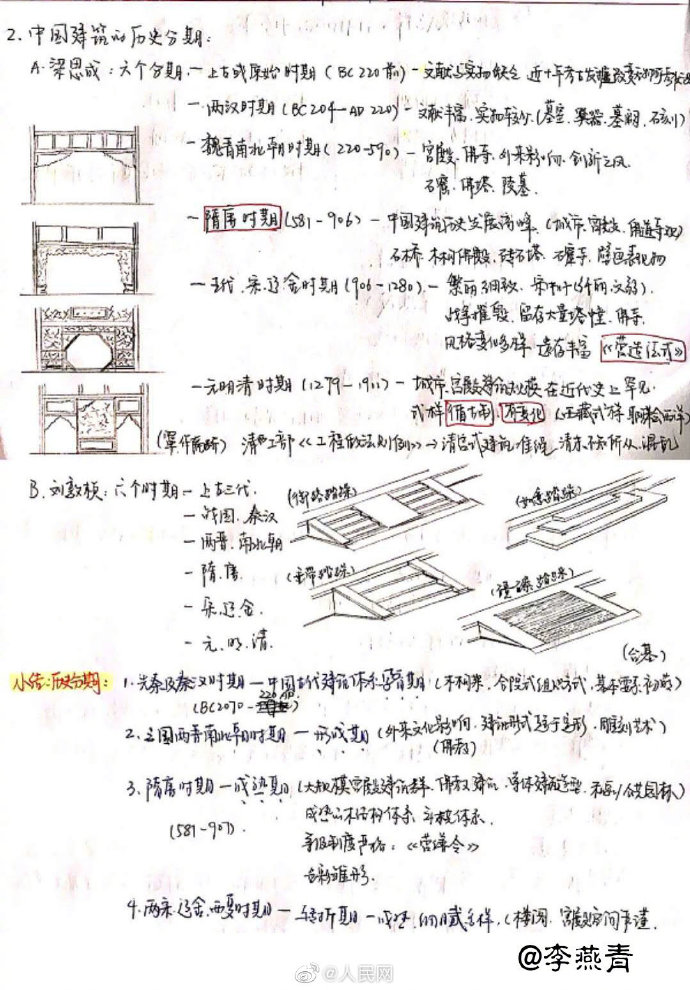 2. 中国建筑的历史分期:
A. 梁思成: 六个分期 - 上古或原始时期 (BC 220前) - 文献与实物缺乏 近十年考古发掘
- 两汉时期 (BC204-AD 220) - 文献丰富. 实物较少. (墓室. 冥器. 墓祠. 石刻)
- 魏晋南北朝时期 (220-590) - 宫殿. 佛寺. 外来影响. 创新之风
石窟. 佛塔. 陵墓.
- 隋唐时期 (581-906) - 中国建筑历史发展高峰. (城市. 宫殿.
石桥. 木构佛殿. 砖石塔. 石窟寺. 壁画
- 五代. 宋. 辽金时期 (906-1280). - 繁丽细致.
战争摧毁. 留存大量塔幢. 佛寺.
风格变化多样 遗存丰富 《营造法式》
- 元明清时期 (1279-1911) - 城市. 宫殿建筑规模在近代史上罕见
式样
清 工部 << 工程做法则例 >> → 清官式建筑准绳. 混乱
B. 刘敦桢: 六个时期 - 上古三代.
- 战国. 秦汉
- 两晋. 南北朝
- 隋. 唐.
- 宋辽金.
- 元. 明. 清.
(御路踏跺)
(如意踏跺)
(垂带踏跺)
(礓磋踏跺)
(台基)
小结: 历史分期:
1. 先秦及秦汉时期 - 中国古代建筑体系 期 (木构架. 合院式组织方式. 基本要素初备)
(BC2070-220前)
2. 三国两晋南北朝时期 - 形成期 (外来文化影响. 建筑形式 雕刻艺术)
(佛教)
3. 隋唐时期 - 成熟期 (大规模宫殿建筑群. 佛教建筑. 单体建筑造型.
(581-907).
成熟的木结构体系. 斗栱体系.
等级制度严格: 《营缮令》
雏形.
4. 两宋. 辽金. 西夏时期 - 转折期 - 成熟. 细腻 多样. (楼阁. 宫殿空间严谨.
@人民网
@李燕青